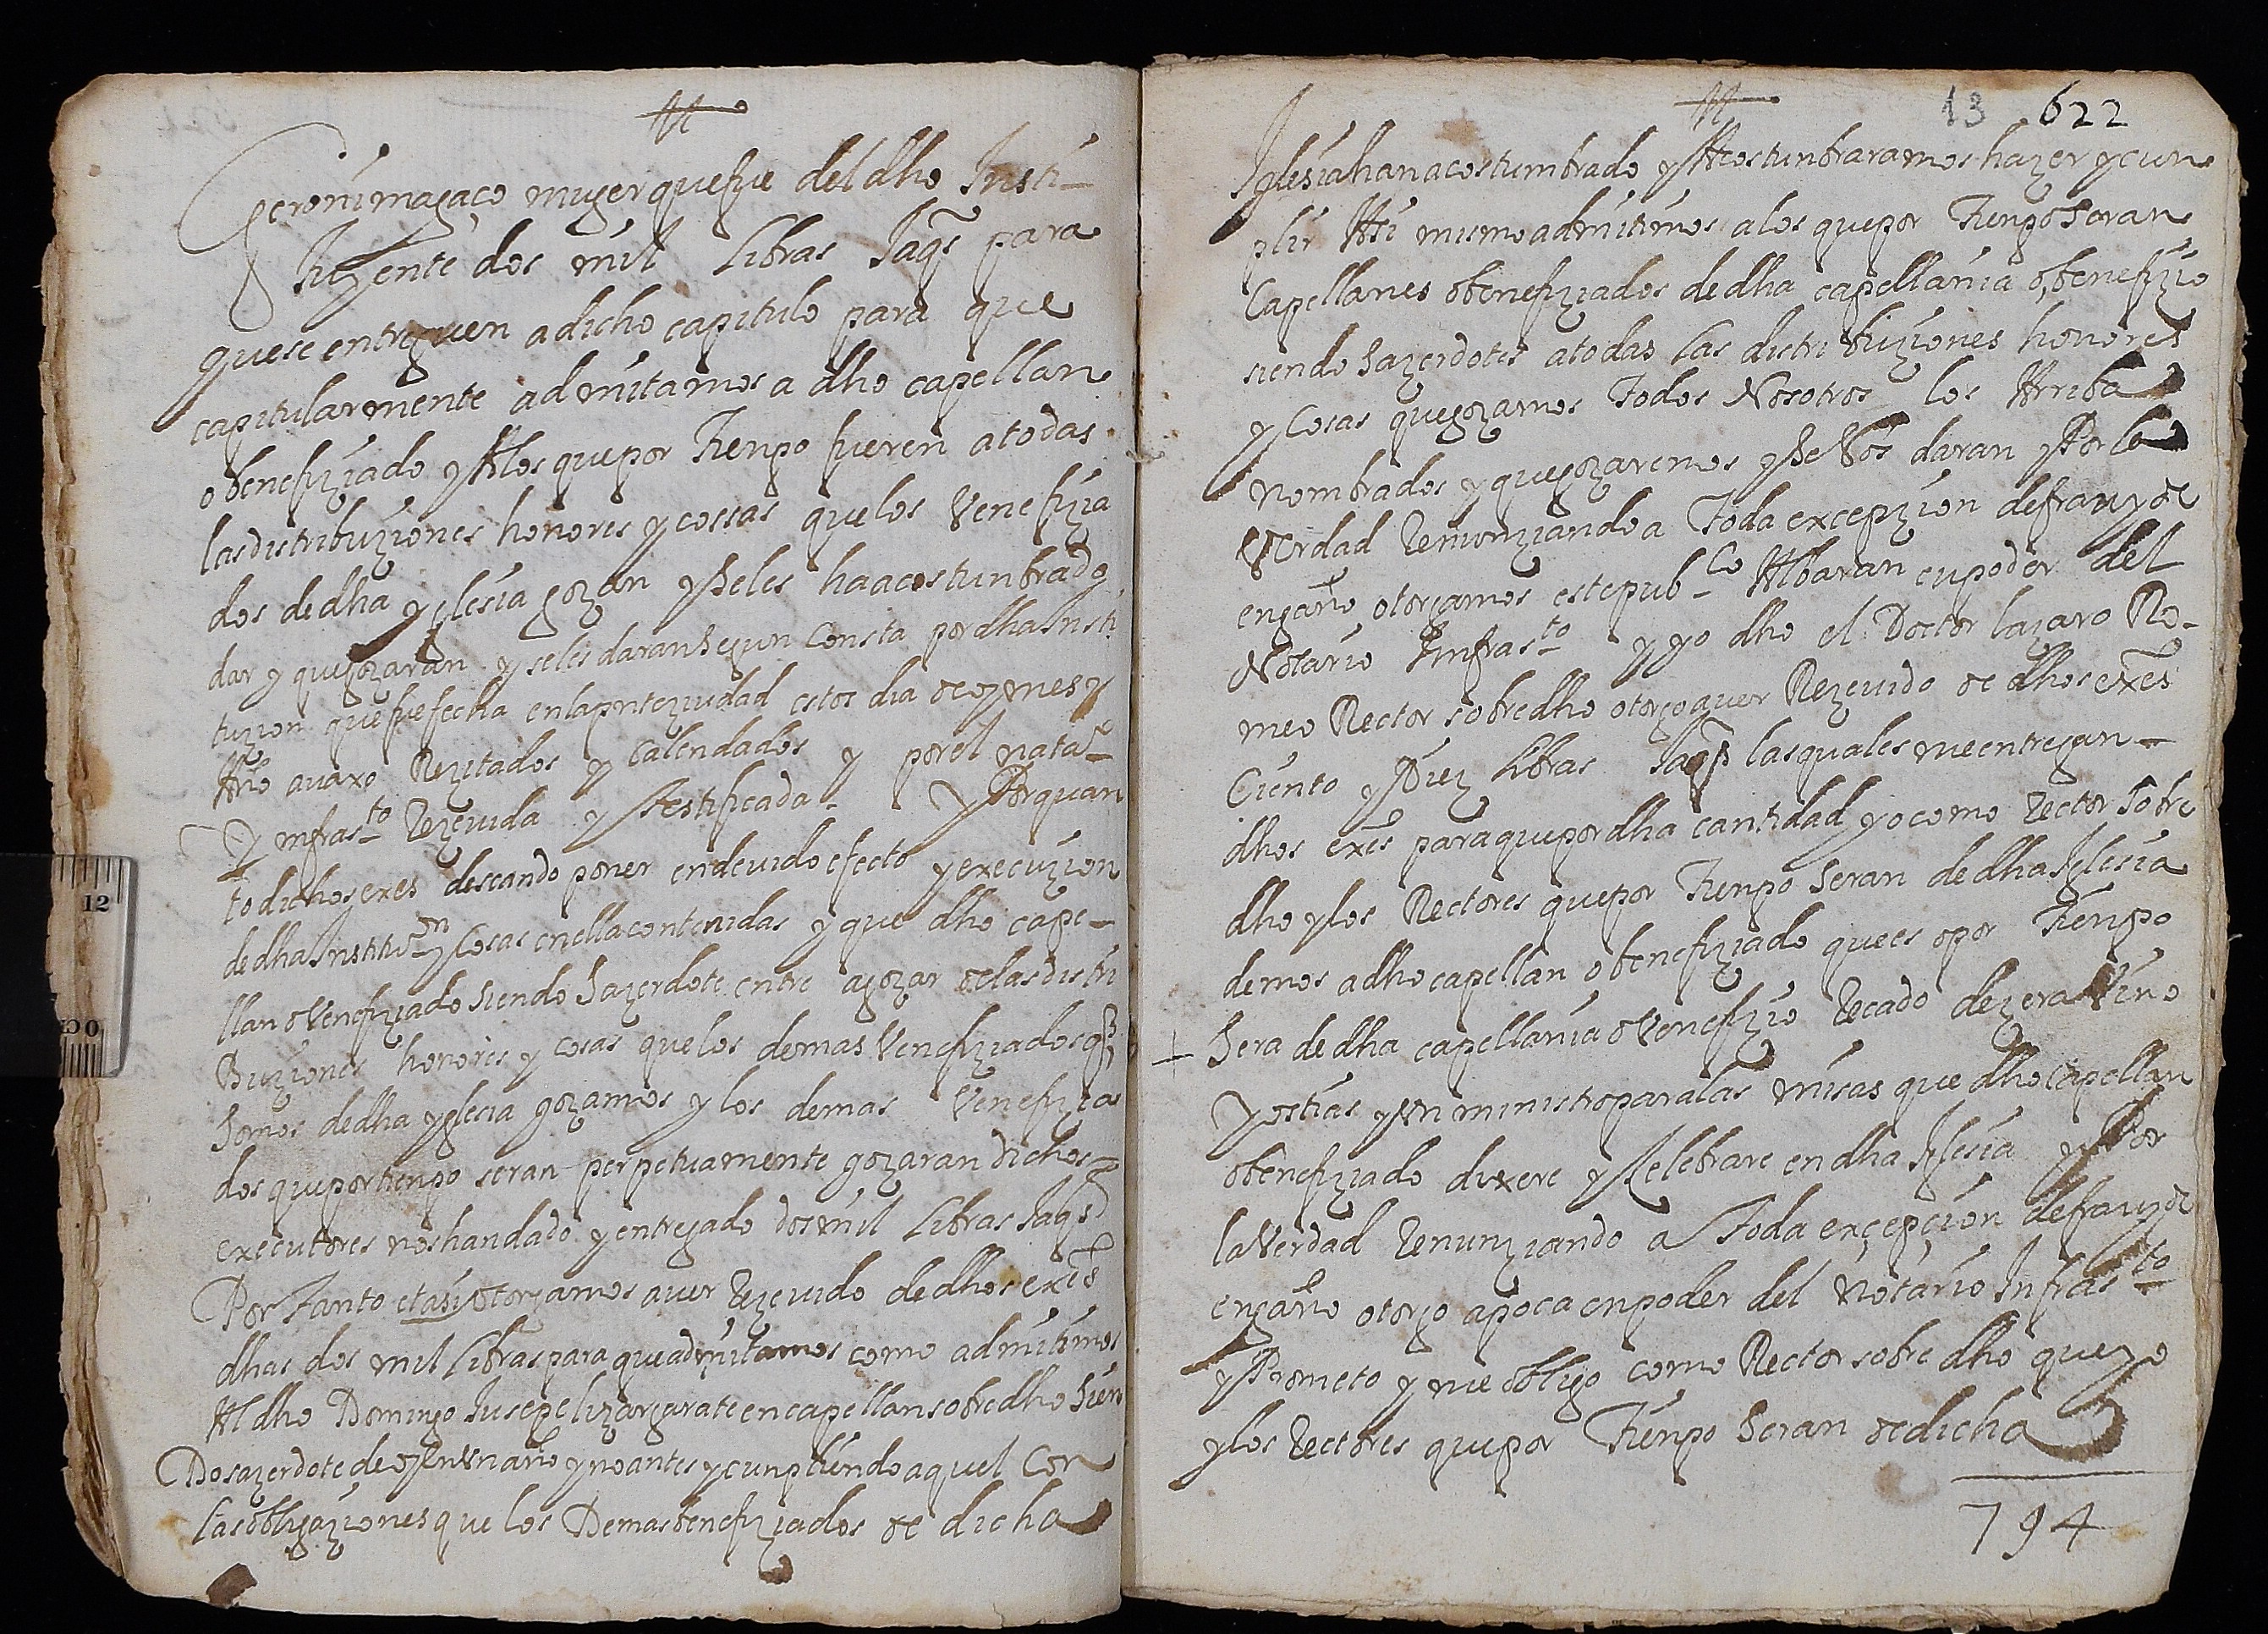 Geronima gaço muger que fue del dho Insti-
tuyente dos mil libras Jaqs para
que se entreguen a dicho capitulo para que
capitularmente admitamos a dho capellan
o benefiziado y Alos que por Tienpo fueren a todas
las distribuziones honores y cossas que los Venefizia
dos de dha yglesia gozan y Seles ha acostunbrado
dar y que gozaran y seles daran Segun Consta por dha Insti
tuzion que fue fecha en la pnte ziudad estos dia de oy mes y
Año auaxo Rezitados y Calendados y por el nota.º
Y infras.to Rezeuida y Testificada. Y Por quan
to dichos exes deseando poner en deuido efecto y execuzion
de dha Institu.on y Cosas en ella contenidas y que dho cape-
llan o Venefiziado Siendo Sazerdote entre a gozar de las distri
Buziones honores y cosas que los demas Venefiziados q
Somos de dha yglesia gozamos y los demas Venefizia
dos que por tienpo seran perpetuamente gozaran dichos
executores nos han dado y entregado dos mil Libras Jaqs
Por Tanto et asi otorgamos auer Rezeuido de dhos exes
dhas dos mil libras para que admitamos como admitimos
Al dho Domingo Jusepe lizargarate en capellan sobre dho Sien
Do sazerdote de oy en Vn año y no antes y cunpliendo aquel Con
las obligaziones que los Demas benefiziados de dicha
13 622
Iglesia han acostumbrado y Acostunbraramos hazer y cun
plir Asi mismo admitimos a los que por Tienpo Seran
Capellanes o benefiziados de dha capellania o, benefizio
siendo Sazerdotes a todas las distribuziones honores
y Cosas que gozamos Todos Nosotros los Arriba
nombrados y que gozaremos y Se Nos daran y Por la
Verdad Renunziando a Toda excepzion de frau y de
engaño otorgamos este pub.co Albaran en poder del
Notario Infras.to y yo dho el Doctor lazaro Ro-
meo Rector sobre dho otorgo auer Rezeuido de dhos exes
Ciento y Diez libras Jaqs las quales me entregan
dhos exes para que por dha cantidad yo como Rector Sobre
dho y los Rectores que por Tienpo Seran de dha Iglesia
demos a dho capellan o benefiziado que es o por Tienpo
+ Sera de dha capellania o Venefizio Recado de zera Vino
y ostias y Vn ministro para las misas que dho Capellan
o benefiziado dixere y Zelebrare en dha Iglesia y Por
la Verdad Renunziando a Toda exçepçion de frau y de
engaño otorgo apoca en poder del Notario Infras.to
y Prometo y me obligo como Rector sobre dho que yo
y los Rectores que por Tienpo Seran de dicha
794